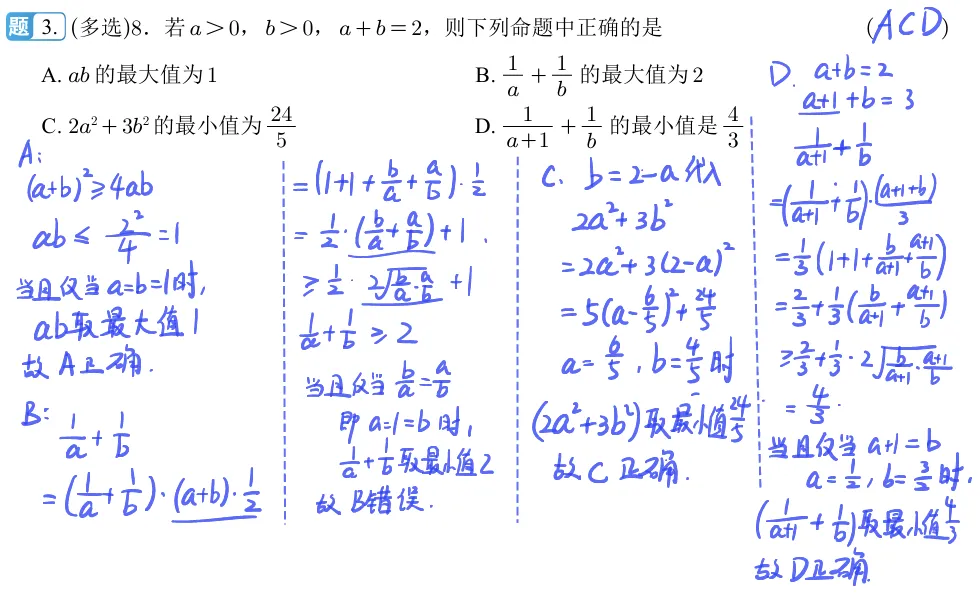 题 3. (多选)8．若 a＞0，b＞0，a＋b＝2，则下列命题中正确的是 (ACD)
A. ab 的最大值为 1
B. 1/a + 1/b 的最大值为 2
C. 2a²＋3b² 的最小值为 24/5
D. 1/(a+1) + 1/b 的最小值是 4/3
A:
(a+b)² ≥ 4ab
ab ≤ 2²/4 = 1
当且仅当 a=b=1时,
ab取最大值1
故A正确.
B:
1/a + 1/b
= (1/a + 1/b)·(a+b)·1/2
= (1+1+b/a+a/b)·1/2
= 1/2·(b/a+a/b)+1
≥ 1/2·2√(b/a·a/b)+1
1/a+1/b ≥ 2
当且仅当 b/a=a/b
即 a=1=b时,
1/a+1/b取最小值2
故B错误.
C. b=2-a代入
2a²+3b²
=2a²+3(2-a)²
=5(a-6/5)²+24/5
a=6/5, b=4/5时
(2a²+3b²)取最小值24/5
故C正确.
D. a+b=2
a+1+b=3
1/(a+1)+1/b
=(1/(a+1)+1/b)·(a+1+b)/3
=1/3(1+1+b/(a+1)+(a+1)/b)
=2/3+1/3(b/(a+1)+(a+1)/b)
≥2/3+1/3·2√(b/(a+1)·(a+1)/b)
=4/3.
当且仅当 a+1=b
a=1/2, b=3/2时,
(1/(a+1)+1/b)取最小值4/3
故D正确.